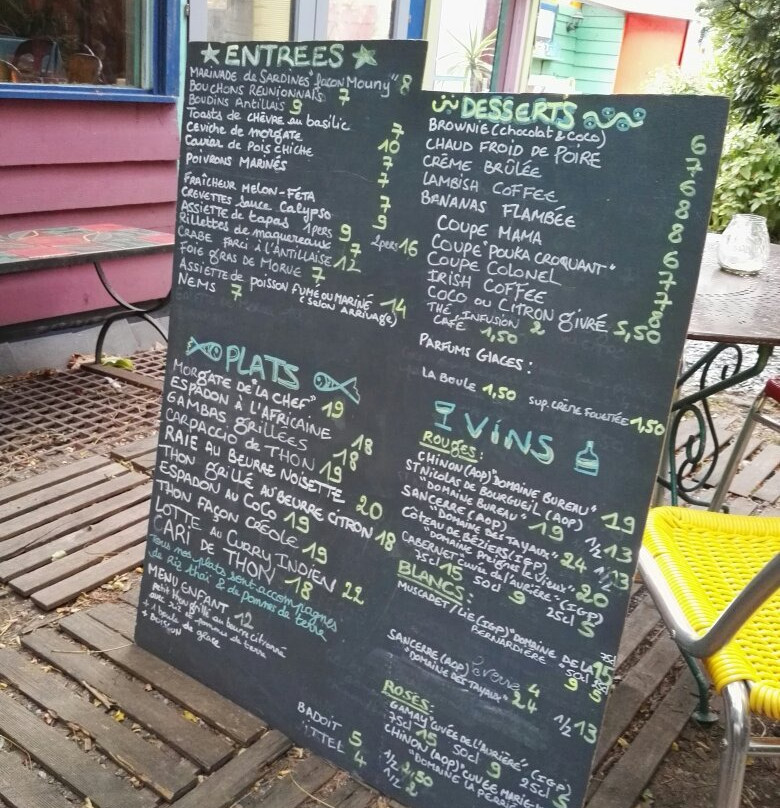 ENTREES
MARINADE de SARDINES "façon Mouny" 8
BOUCHONS REUNIONNAIS 7
BOUDINS Antillais 9
Toasts de CHÈVRE au basilic 7
Ceviche de morgate 10
Caviar de Pois chiche 7
POIVRONS MARINÉS 7
FRAÎCHEUR MELON-FÉTA 7
CREVETTES sauce Calypso 9
ASSIETTE de tapas 1pers 9 2pers 16
Rillettes de maquereaux 7
CRABE FARCI à L'ANTILLAISE 12
FOIE GRAS DE MORUE 7
ASSIETTE de POISSON FUMÉ OU MARINÉ 14
(selon ARRIVAGE)
NEMS 7
PLATS
MORGATE DE "LA CHEF" 19
ESPADON À L'AFRICAINE 18
GAMBAS GRILLÉES 18
CARPACCIO DE THON 19
RAIE AU BEURRE NOISETTE 20
THON GRILLÉ AU BEURRE CITRON 18
ESPADON AU COCO 19
THON FAÇON CRÉOLE 19
LOTTE AU CURRY INDIEN 22
CARI DE THON 18
Tous nos plats sont accompagnés
de riz thaï & de pommes de terre
MENU ENFANT 12
petit thon grillé au beurre citronné
avec riz et pommes de terre
+ 1 boule de glace
+ BOISSON
BADOIT 5
VITTEL 4
DESSERTS
BROWNIE (chocolat & coco) 6
CHAUD FROID DE POIRE 7
CRÈME BRÛLÉE 6
LAMBISH COFFEE 8
BANANAS FLAMBÉE 8
COUPE MAMA 6
COUPE "POUKA CROQUANT" 7
COUPE COLONEL 7
IRISH COFFEE 8
COCO OU CITRON GIVRÉ 5,50
THÉ, INFUSION 2
CAFÉ 1,50
PARFUMS GLACES :
LA BOULE 1,50 SUP. CRÈME FOUETTÉE 1,50
VINS
ROUGES :
CHINON (AOP) "DOMAINE BUREAU" 19
ST NICOLAS DE BOURGUEIL (AOP)
"DOMAINE BUREAU" 19 1/2 13
SANCERRE (AOP)
"DOMAINE DES TAYAUX" 24 1/2 13
CÔTEAU DE BÉZIERS (IGP)
"DOMAINE Preignes le Vieux" 20
CABERNET "Cuvée de l'aurière" (IGP)
75cl 15 50cl 9 25cl 5
BLANCS :
MUSCADET/LIE (IGP) "DOMAINE DE LA
PERNARDIÈRE" 75cl 15 50cl 9 5
SANCERRE (AOP) 4
"DOMAINE DES TAYAUX" 24 1/2 13
ROSÉS :
GAMAY "CUVÉE DE L'AURIÈRE" (IGP)
75cl 15 50cl 9 25cl 5
CHINON (AOP) "CUVÉE MARIE"
"DOMAINE LA